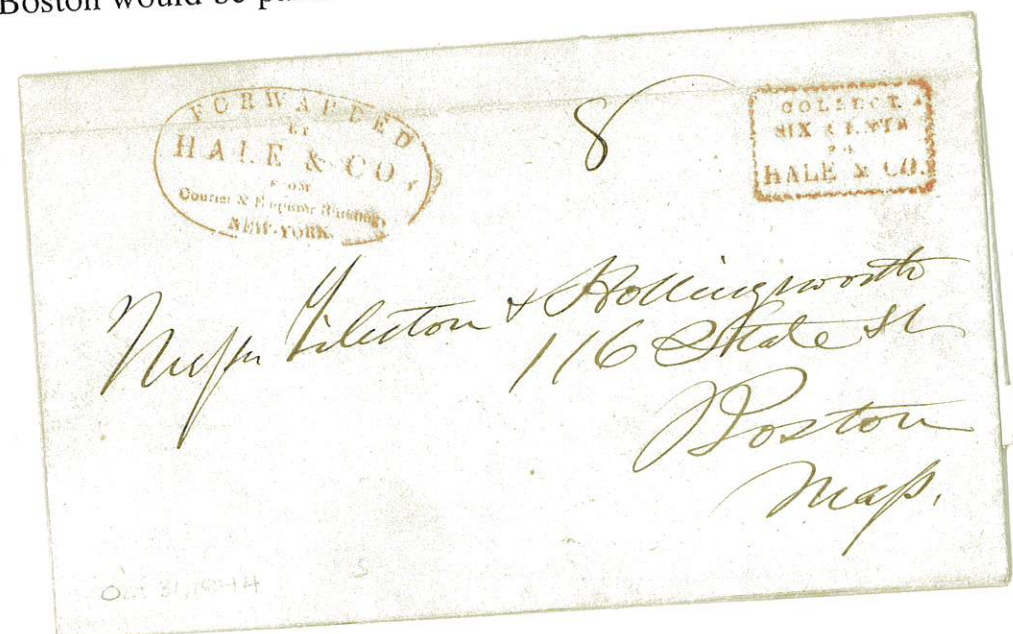 Boston would be
FORWARDED
BY
HALE & CO.
FROM
Courier & Enquirer Building,
NEW-YORK.
8
COLLECT
SIX CENTS
FOR
HALE & CO.
Messrs Tileston & Hollingsworth
116 State St
Boston
Mass.
Oct 31, 1844
5